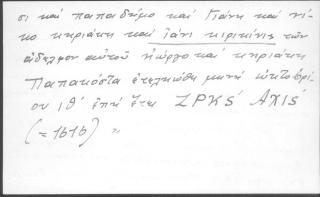 σι καὶ παπαδῆμο καὶ Γιάνη καὶ νί-
κο κηριάκη καὶ ἰάνι κιρικίνις τῶν
ἀδελφον αὐτοῦ κιώργο καὶ κηριάκη
Παπακόστα ἐτεληώθη μηνὶ ὠκτοβρί-
ου ιθ´ ἐπὶ ἔτει ΖΡΚS´ ΑΧΙS´
(= 1616) "